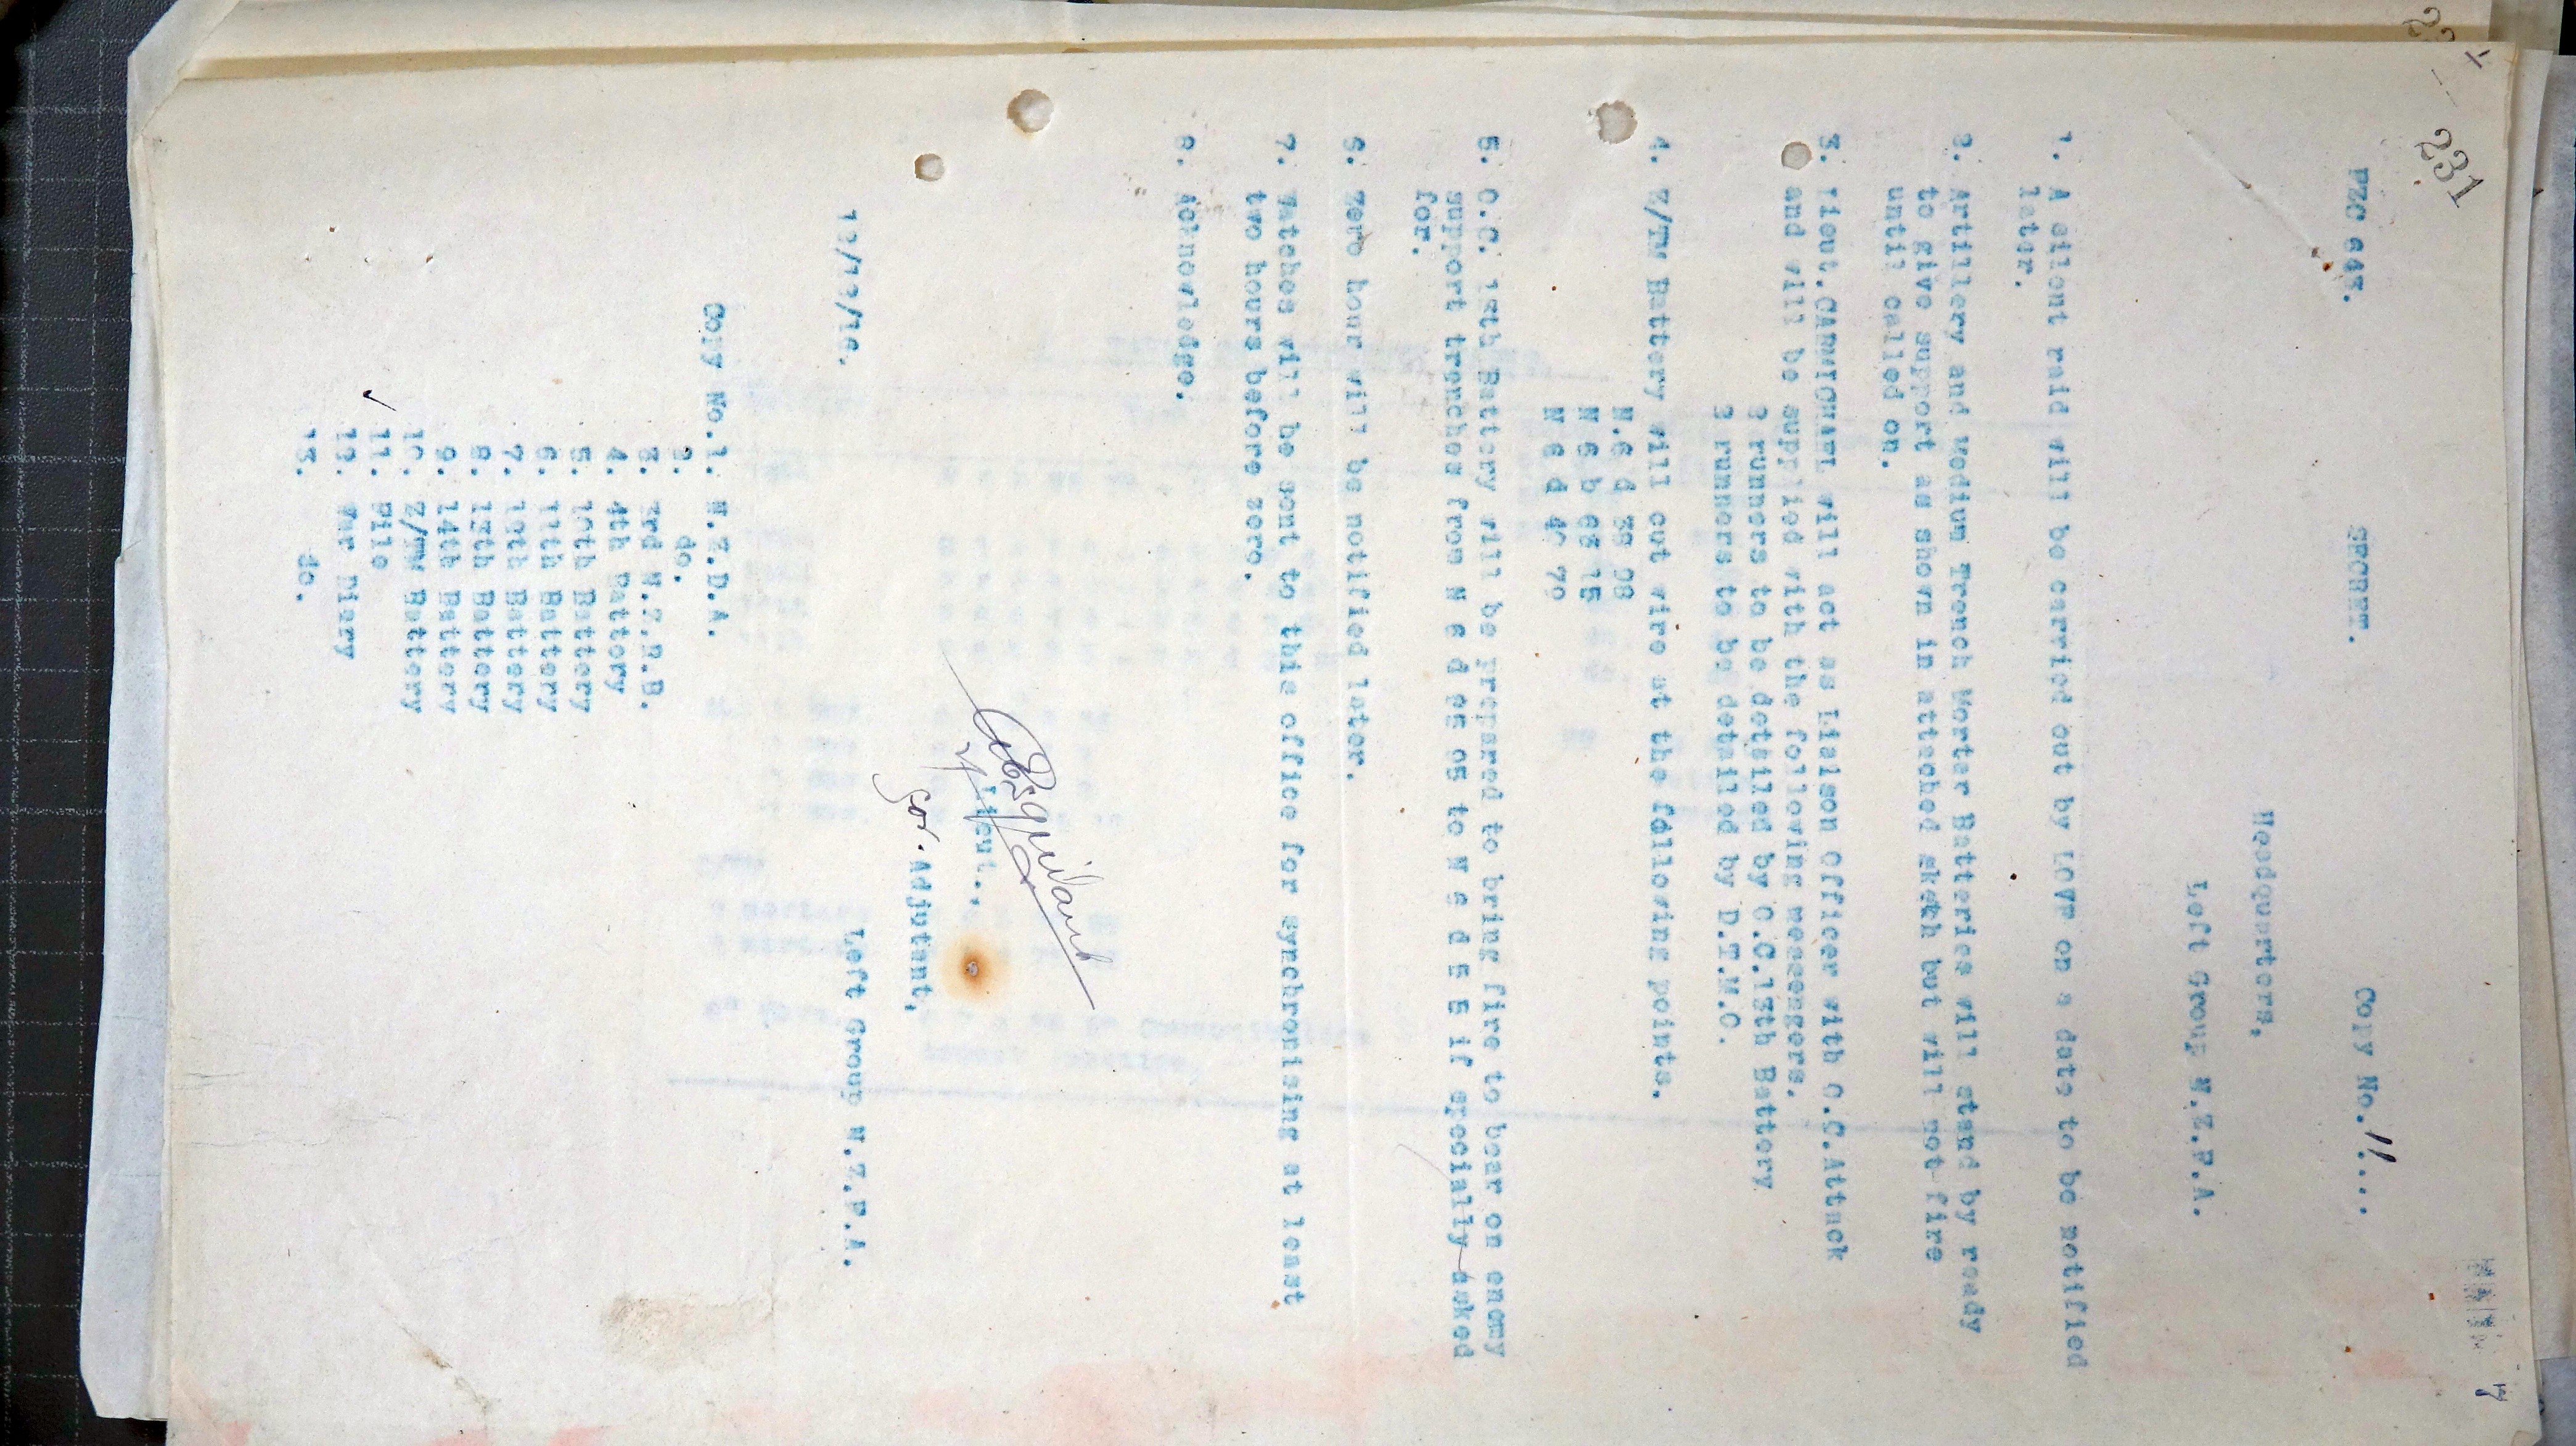 231
FZC 643. SECRET. Copy No. 11....
Headquarters,
Left Group N.Z.F.A.
1. A silent raid will be carried out by LOVE on a date to be notified
later.
2. Artillery and Medium Trench Mortar Batteries will stand by ready
to give support as shown in attached sketh but will not fire
until called on.
3. Lieut.CARMICHAEL will act as Liaison Officer with O.C.Attack
and will be supplied with the following messengers.
2 runners to be detailed by O.C.13th Battery
2 runners to be detailed by D.T.M.O.
4. Z/TM Battery will cut wire at the following points.
N.6 d 38 98
N 6 b 63 15
N 6 d 40 79
5. O.C. 13th Battery will be prepared to bring fire to bear on enemy
support trenches from N 6 d 05 05 to N 6 d 5 5 if specially asked
for.
6. Zero hour will be notified later.
7. Watches will be sent to this office for synchronising at least
two hours before zero.
8. Acknowledge.
2/Lieut..,
for Adjutant,
12/12/16. Left Group N.Z.F.A.
Copy No.1. N.Z.D.A.
2. do.
3. 3rd N.Z.R.B.
4. 4th Battery
5. 10th Battery
6. 11th Battery
7. 12th Battery
8. 13th Battery
9. 14th Battery
10. Z/TM Battery
11. File
12. War Diary
13. do.